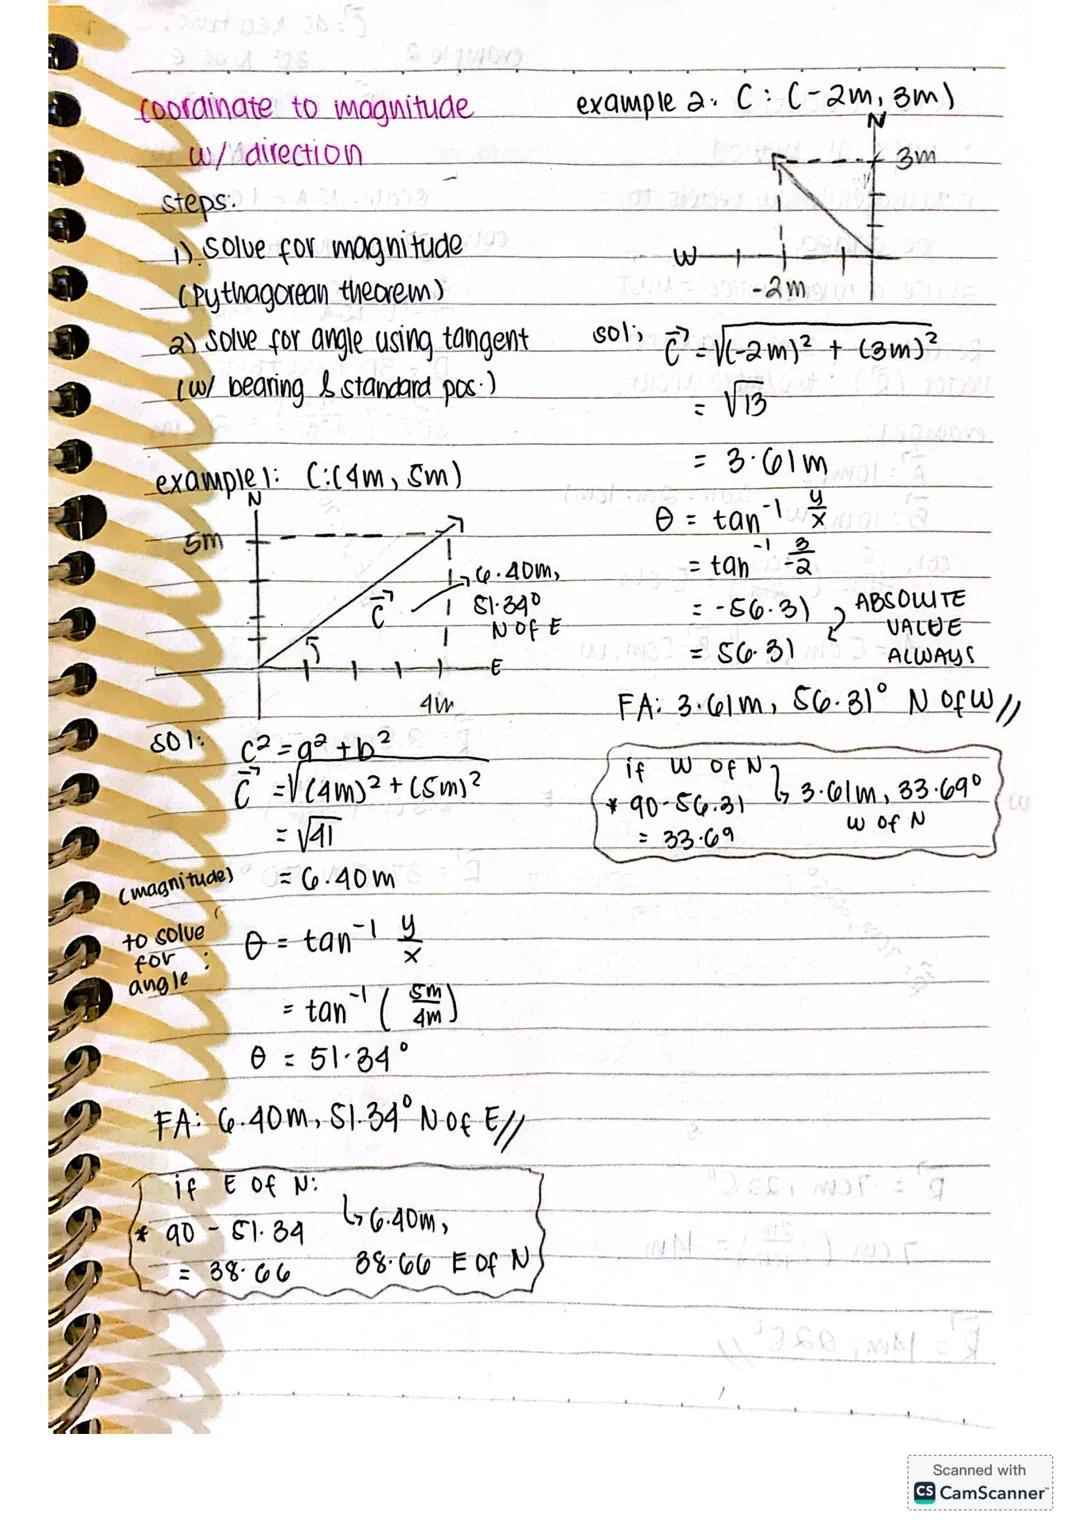 coordinate to magnitude
w/ direction
steps:
1) solve for magnitude
(Pythagorean theorem)
2) solve for angle using tangent
(w/ bearing & standard pos.)
example 1: C:(4m, 5m)
N
5m
C⃗
6.40m,
51.34°
N of E
E
4m
sol:
c² = a² + b²
C⃗ = √(4m)² + (5m)²
= √41
(magnitude) = 6.40m
to solve for angle: θ = tan⁻¹ y/x
= tan⁻¹ (5m/4m)
θ = 51.34°
FA: 6.40m, 51.34° N of E//
if E of N:
* 90 - 51.34 ↳ 6.40m,
= 38.66 38.66 E of N
example 2: C: (-2m, 3m)
N
3m
W
-2m
sol; C⃗ = √(-2m)² + (3m)²
= √13
= 3.61m
θ = tan⁻¹ y/x
= tan⁻¹ 3/-2
= -56.31 ABSOLUTE
VALUE
= 56.31 ALWAYS
FA: 3.61m, 56.31° N of W//
if W of N
* 90-56.31 ↳ 3.61m, 33.69°
= 33.69 W of N
Scanned with
CS CamScanner